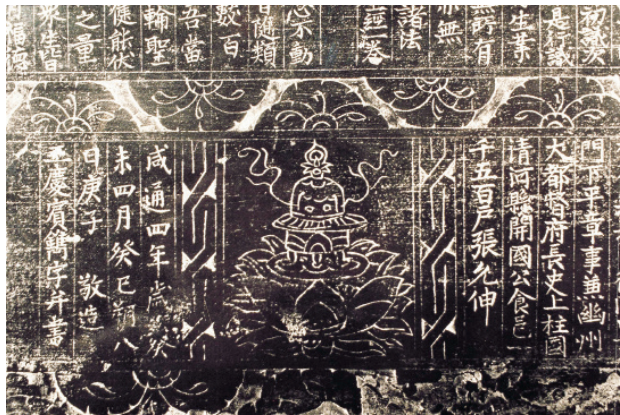 初識次
是行識
生業
無所有
亦無
諸法
經二卷
心不動
日隨類
數百
吾當
輪聖
健能伏
之量
福德
門下平章事兼幽州
大都督府長史上柱國
清河縣開國公食邑一
千五百戶張允伸
咸通四年歲次癸
未四月癸巳朔八
日庚子 敬造
王慶賓鐫字并書